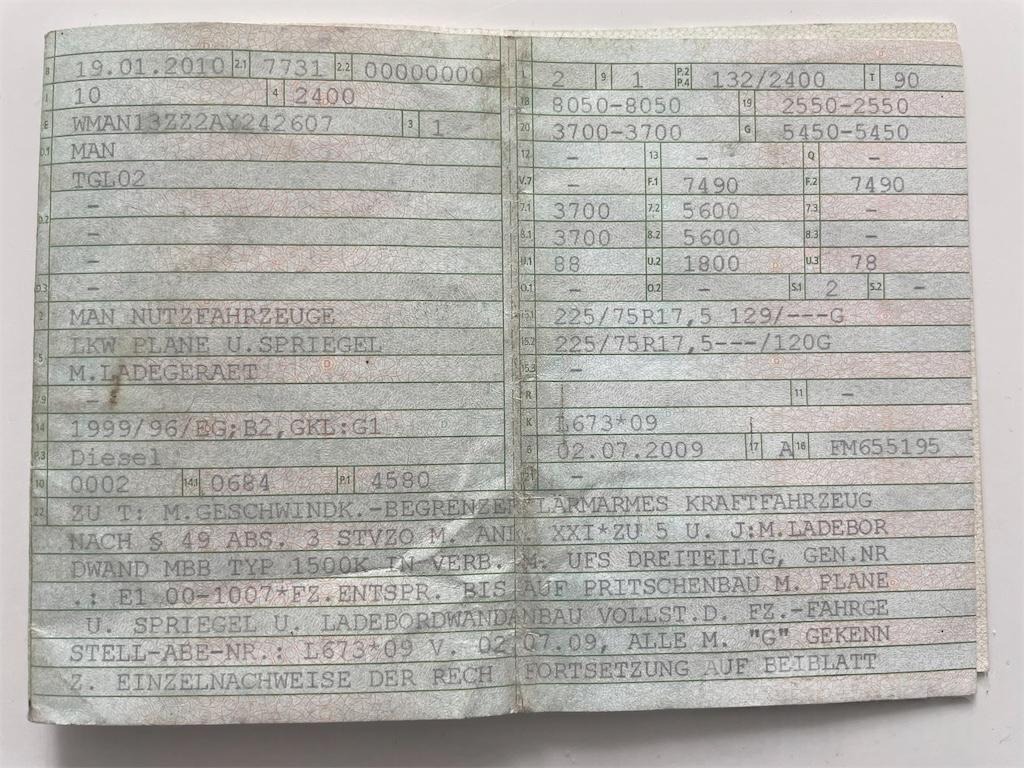 B 19.01.2010 2.1 7731 2.2 00000000
J 10 4 2400
E WMAN13ZZ2AY242607 3 1
D.1 MAN
TGL02
D.2 –
–
–
D.3 –
2 MAN NUTZFAHRZEUGE
5 LKW PLANE U.SPRIEGEL
M.LADEGERAET
V.9 –
14 1999/96/EG;B2,GKL:G1
P.3 Diesel
10 0002 14.1 0684 P.1 4580
L 2 9 1 P.2 P.4 132/2400 T 90
18 8050-8050 19 2550-2550
20 3700-3700 G 5450-5450
12 – 13 – Q –
V.7 – F.1 7490 F.2 7490
7.1 3700 7.2 5600 7.3 –
8.1 3700 8.2 5600 8.3 –
U.1 88 U.2 1800 U.3 78
O.1 – O.2 – S.1 2 S.2 –
15.1 225/75R17,5 129/---G
15.2 225/75R17,5---/120G
15.3 –
R 11 –
K L673*09
6 02.07.2009 17 A 16 FM655195
21 –
22 ZU T: M.GESCHWINDK.-BEGRENZER*LÄRMARMES KRAFTFAHRZEUG
NACH § 49 ABS. 3 STVZO M. ANL. XXI*ZU 5 U. J:M.LADEBOR
DWAND MBB TYP 1500K IN VERB. M. UFS DREITEILIG, GEN.NR
.: E1 00-1007*FZ.ENTSPR. BIS AUF PRITSCHENBAU M. PLANE
U. SPRIEGEL U. LADEBORDWANDANBAU VOLLST.D. FZ.-FAHRGE
STELL-ABE-NR.: L673*09 V. 02.07.09, ALLE M. "G" GEKENN
Z. EINZELNACHWEISE DER RECH FORTSETZUNG AUF BEIBLATT